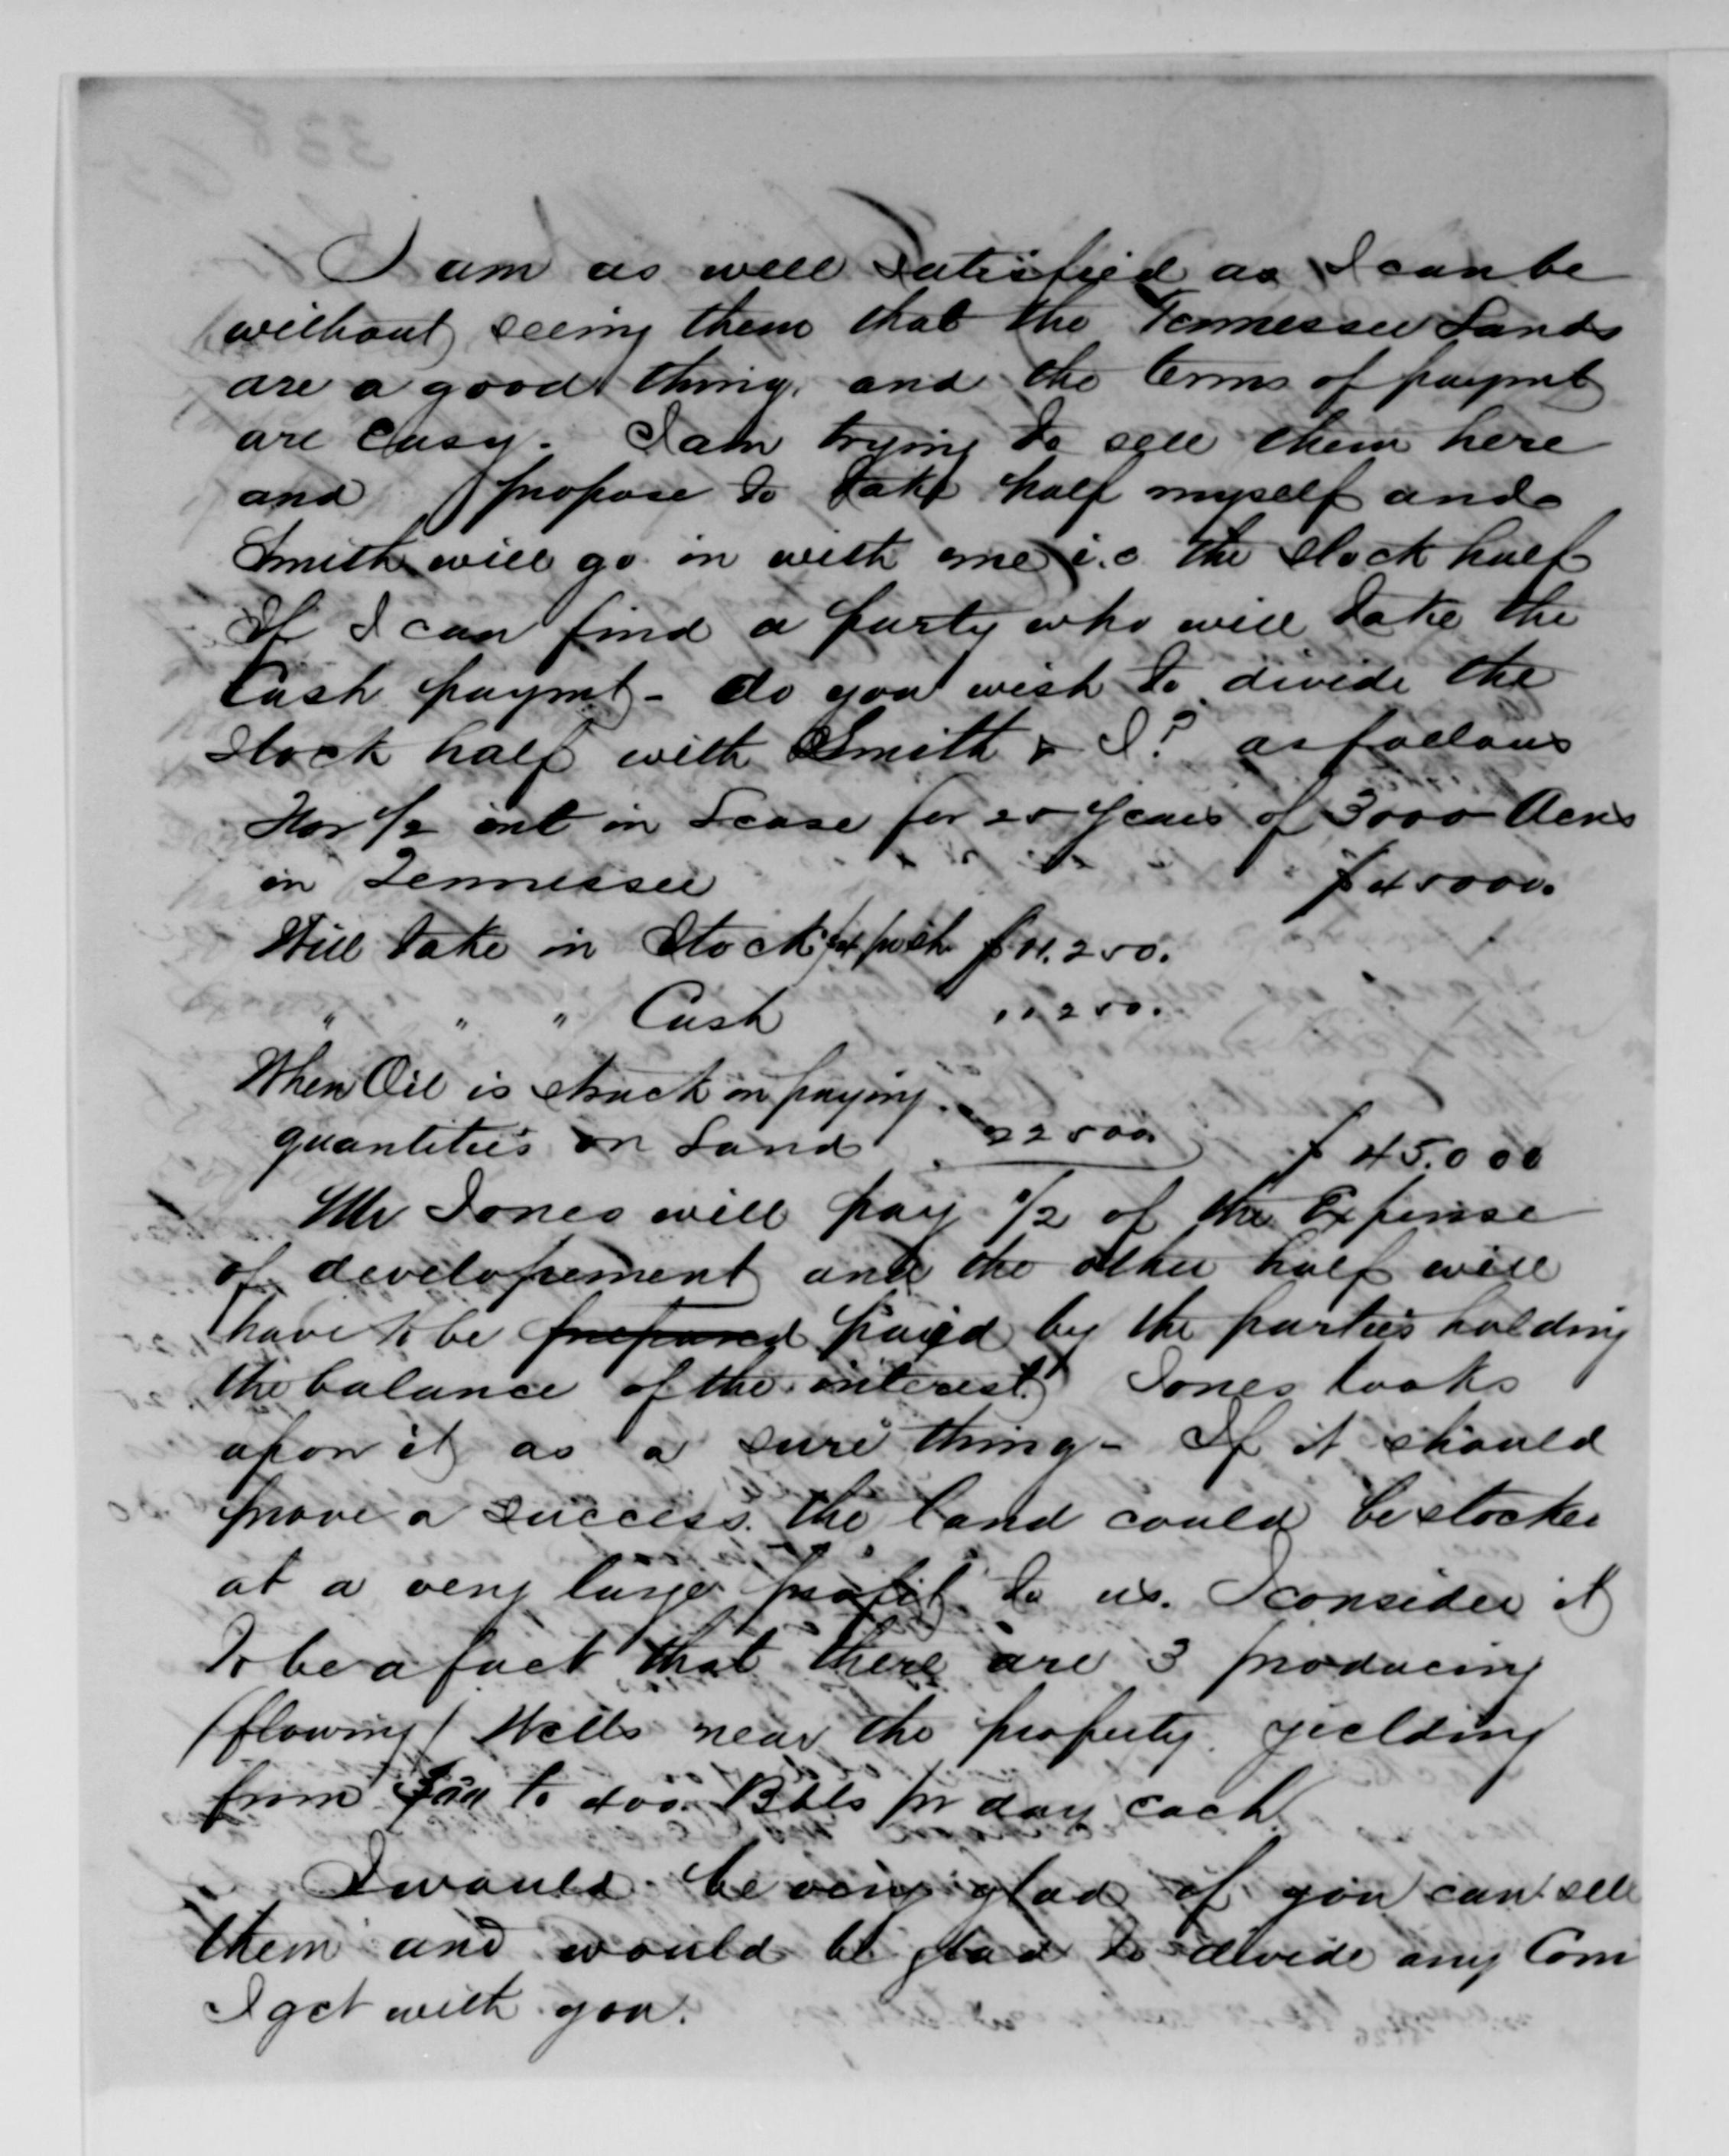 I am as well satisfied as I can be
without seeing them that the Tennessee Lands
are a good thing, and the terms of paymt
are easy. I am trying to sell them here
and propose to take half myself and
Smith will go in with me i.e. the stock half
If I can find a party who will take the
Cash paymt - do you wish to divide the
stock half with Smith & I? as follows
For 1/2 int in Lease for 20 years of 3000 Acres
in Tennessee $45000.
Will take in Stock $11.250.
" " " Cash 11250.
When Oil is struck in paying
quantities on Land 22500 $45.000
Mr Jones will pay 1/2 of the Expense
of developement and the other half will
have to be prepared paid by the parties holding
the balance of the interest. Jones looks
upon it as a sure thing - If it should
prove a success the land could be stocked
at a very large profit to us. I consider it
to be a fact that there are 3 producing
(flowing) Wells near the property. yielding
from to 400. Bbls pr day each.
I would be very glad if you can sell
them and would be glad to divide any Com
I get with you.